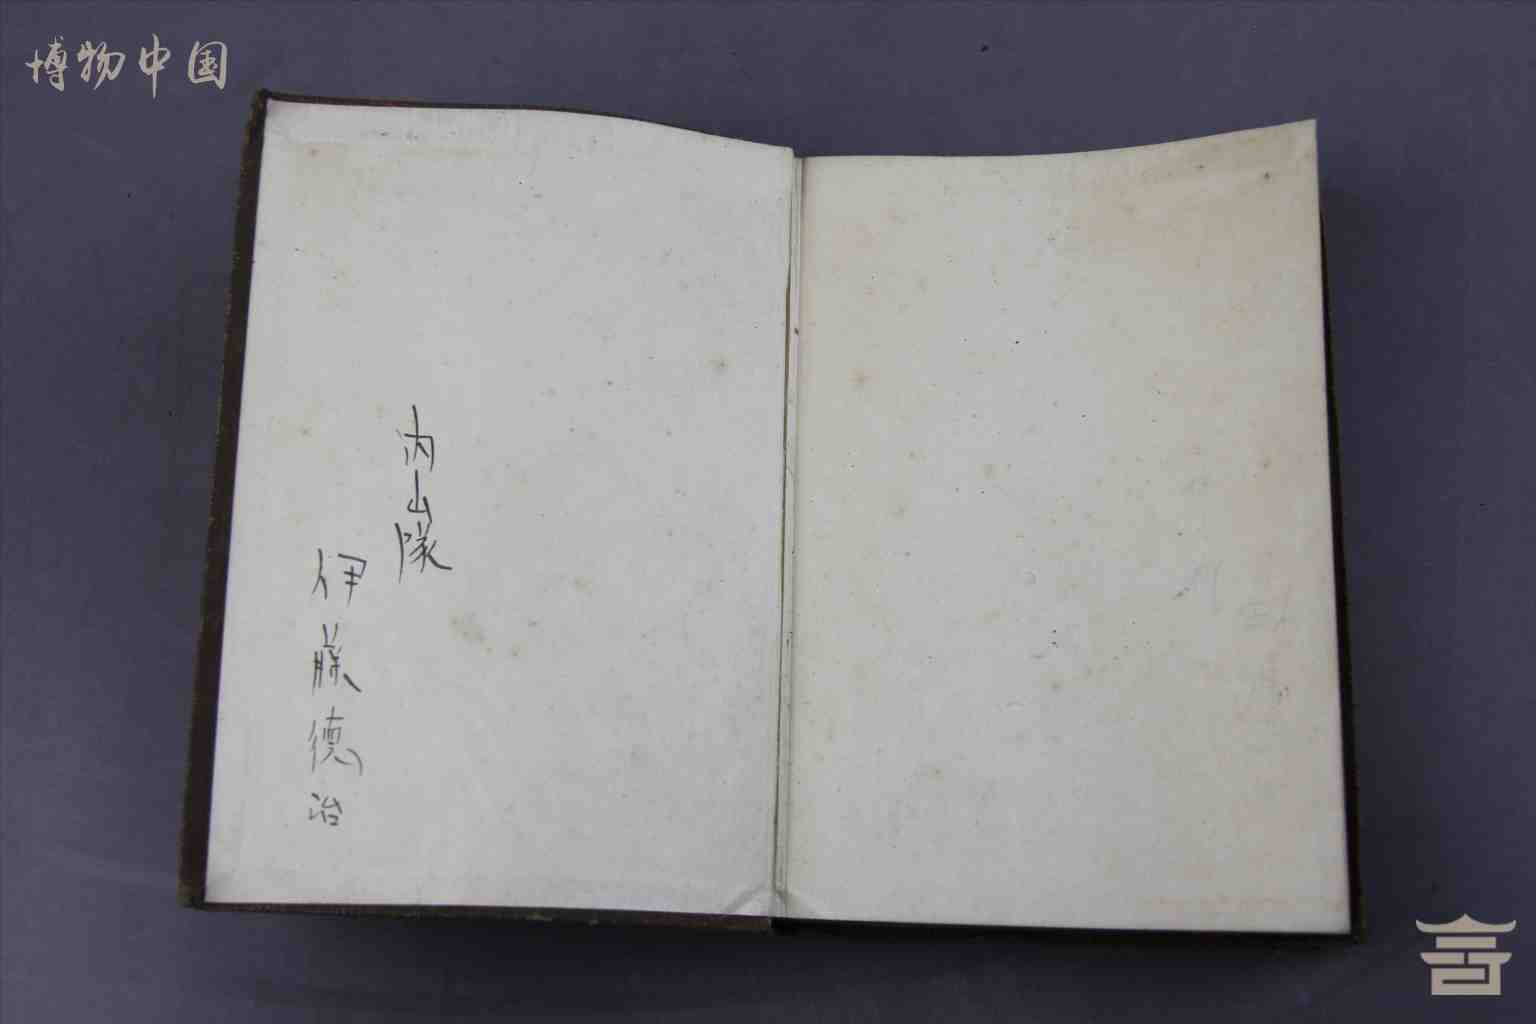 博物中国
内山隊
伊藤徳治